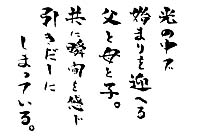 光の中で
始まりを迎へる
父と母と子。
共に瞬間を感じ
引きだしに
しまっている。